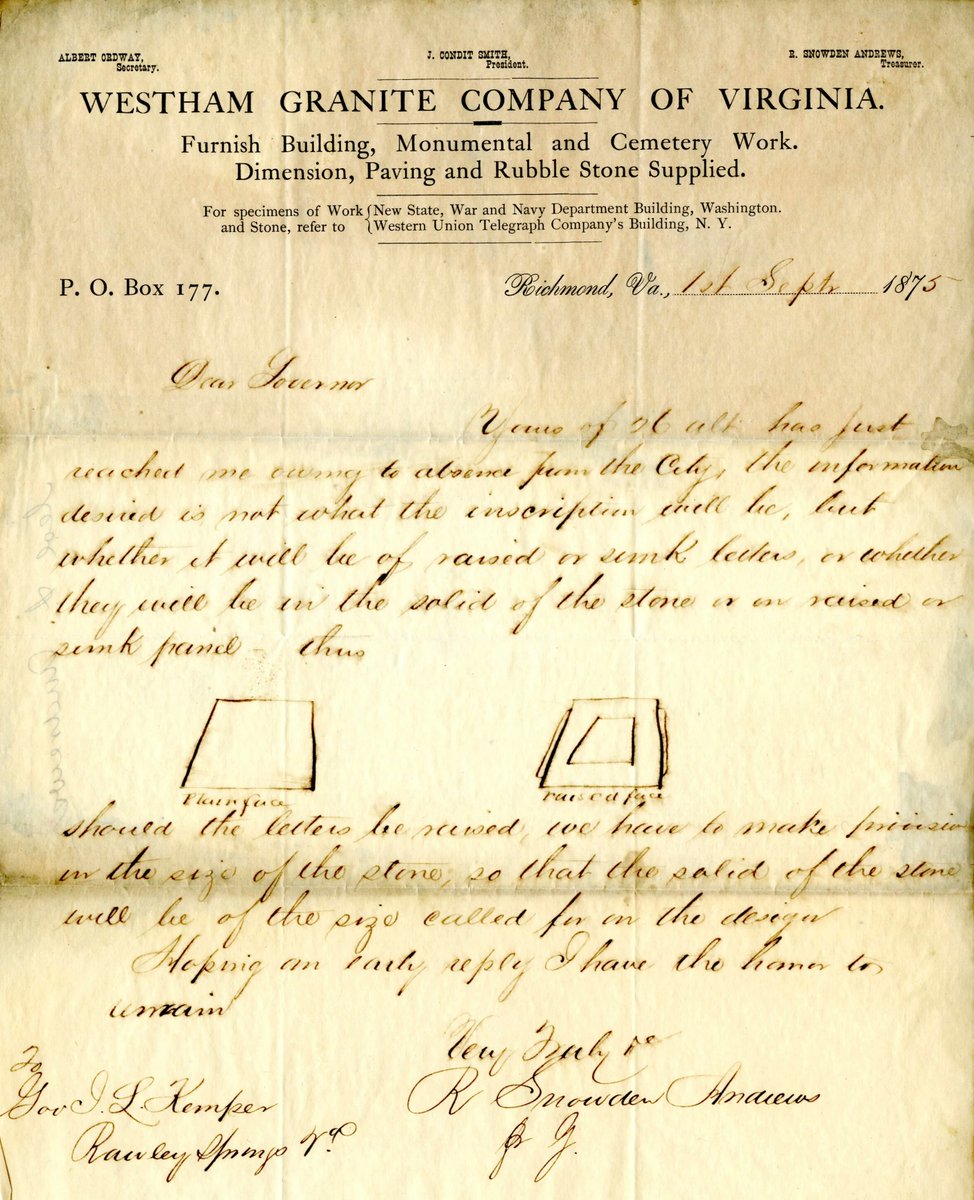 ALBERT ORDWAY,
Secretary.
J. CONDIT SMITH,
President.
R. SNOWDEN ANDREWS,
Treasurer.
WESTHAM GRANITE COMPANY OF VIRGINIA.
Furnish Building, Monumental and Cemetery Work.
Dimension, Paving and Rubble Stone Supplied.
For specimens of Work { New State, War and Navy Department Building, Washington.
and Stone, refer to { Western Union Telegraph Company's Building, N. Y.
P. O. Box 177.
Richmond, Va., 1st Sept 1875
Dear Governor
Yours of 26 ult has just
reached me owing to absence from the City, the information
desired is not what the inscription will be, but
whether it will be of raised or sunk letters, or whether
they will be in the solid of the stone or on raised or
sunk panel – thus
Plain face
raised face
should the letters be raised, we have to make provision
in the size of the stone, so that the solid of the stone
will be of the size called for on the design
Hoping an early reply I have the honor to
remain
Very Truly &c
R Snowden Andrews
To
Gov J. L. Kemper
Rawley Springs Va.